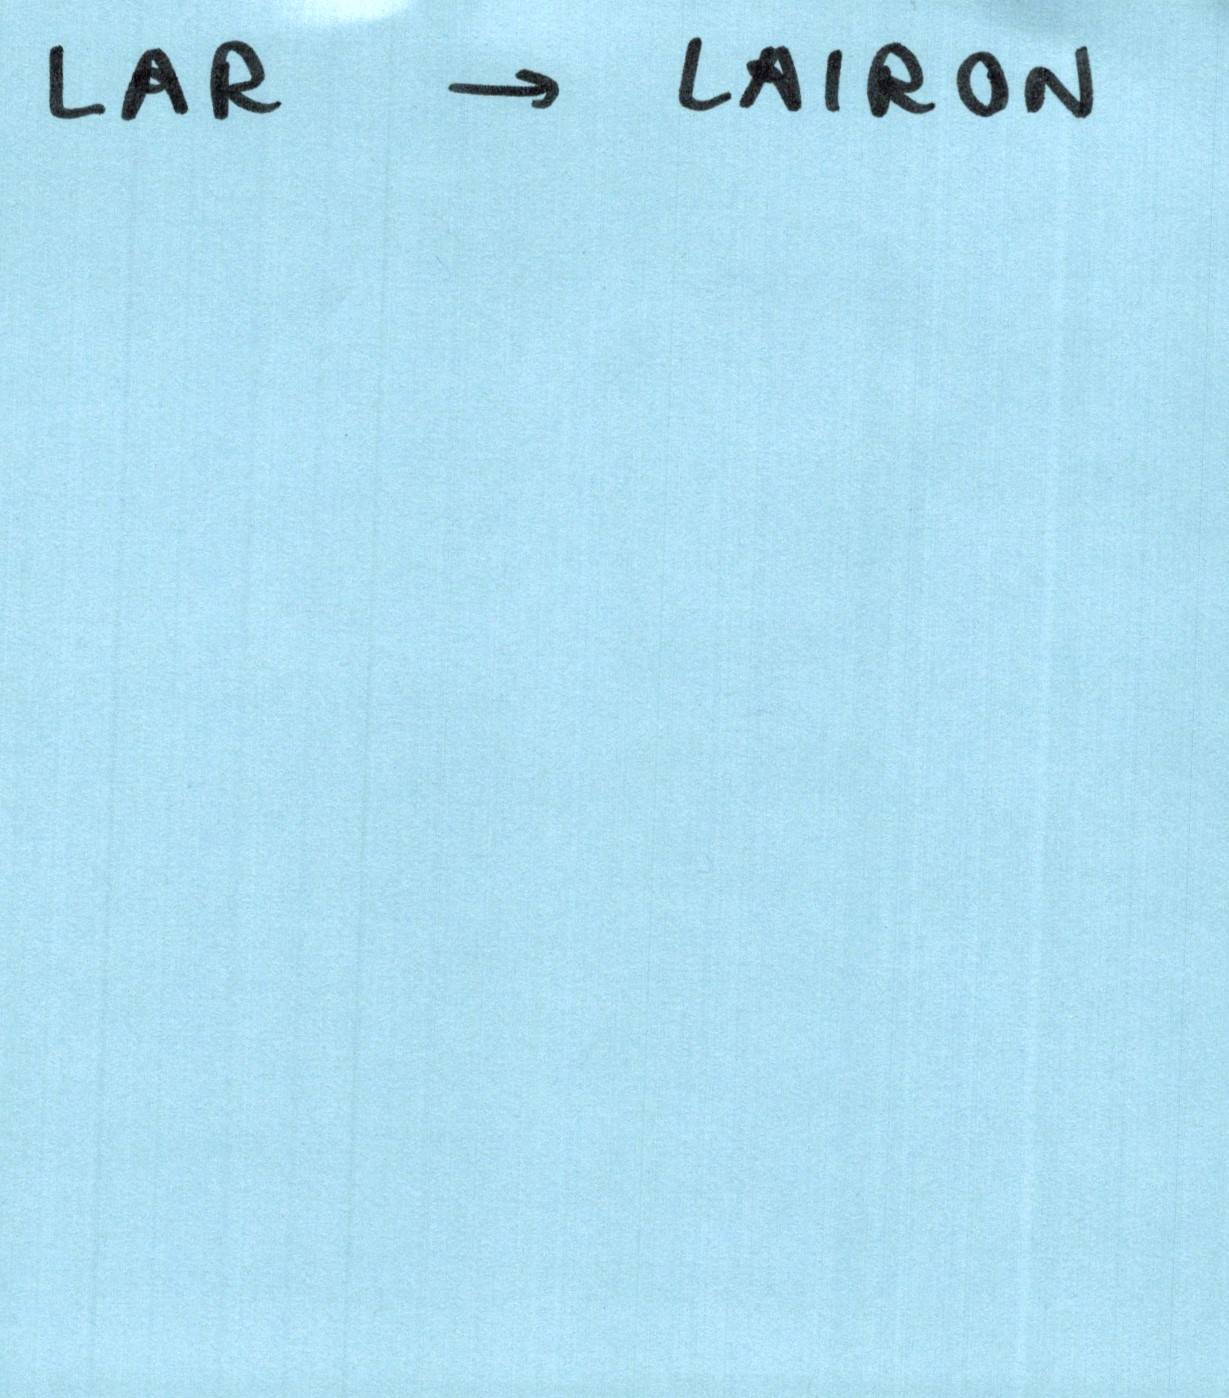 LAR → LAIRON